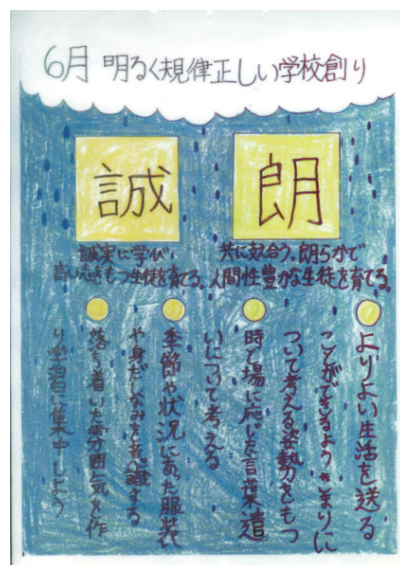 6月 明るく規律正しい学校創り
誠
誠実に学び、
高い志をもつ生徒を育てる。
朗
共に 合う、朗らかで
人間性豊かな生徒を育てる。
よりよい生活を送る
ことができるようきまりに
ついて考える姿勢をもつ
時と場に応じた言葉遣
いについて考える
季節や状況にあった服装
や身だしなみを意識する
落ち着いた雰囲気を作
り学習に集中しよう